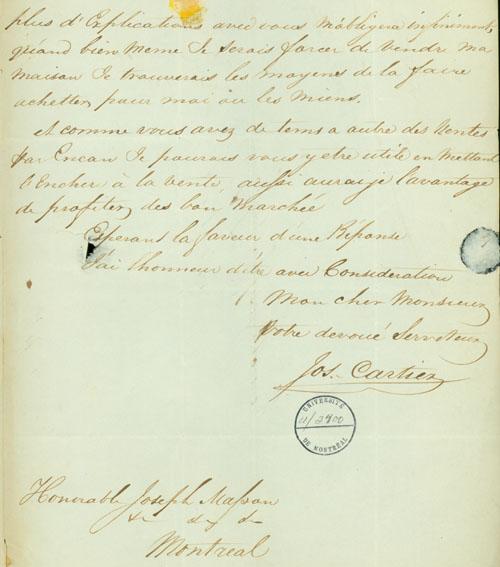 plus d'Explications avec vous m'obligera infiniment,
quand bien meme Je serais forcer de vendre ma
maison Je trouverais les moyens de la faire
achetter pour moi ou les miens.
et comme vous avez de tems a autre des Ventes
par Encan Je pourais vous y etre utile en Mettant
l'Encher à la vente, aussi aurai je l'avantage
de profiter des bon Marchée
Esperant la faveur d'une Réponse
J'ai l'honneur d'être avec Consideration
Mon cher Monsieur
Votre devoué Serviteur
Jos. Cartier
UNIVERSITÉ
2900
DE MONTRÉAL
Honorable Joseph Masson
&c &c &c
Montreal